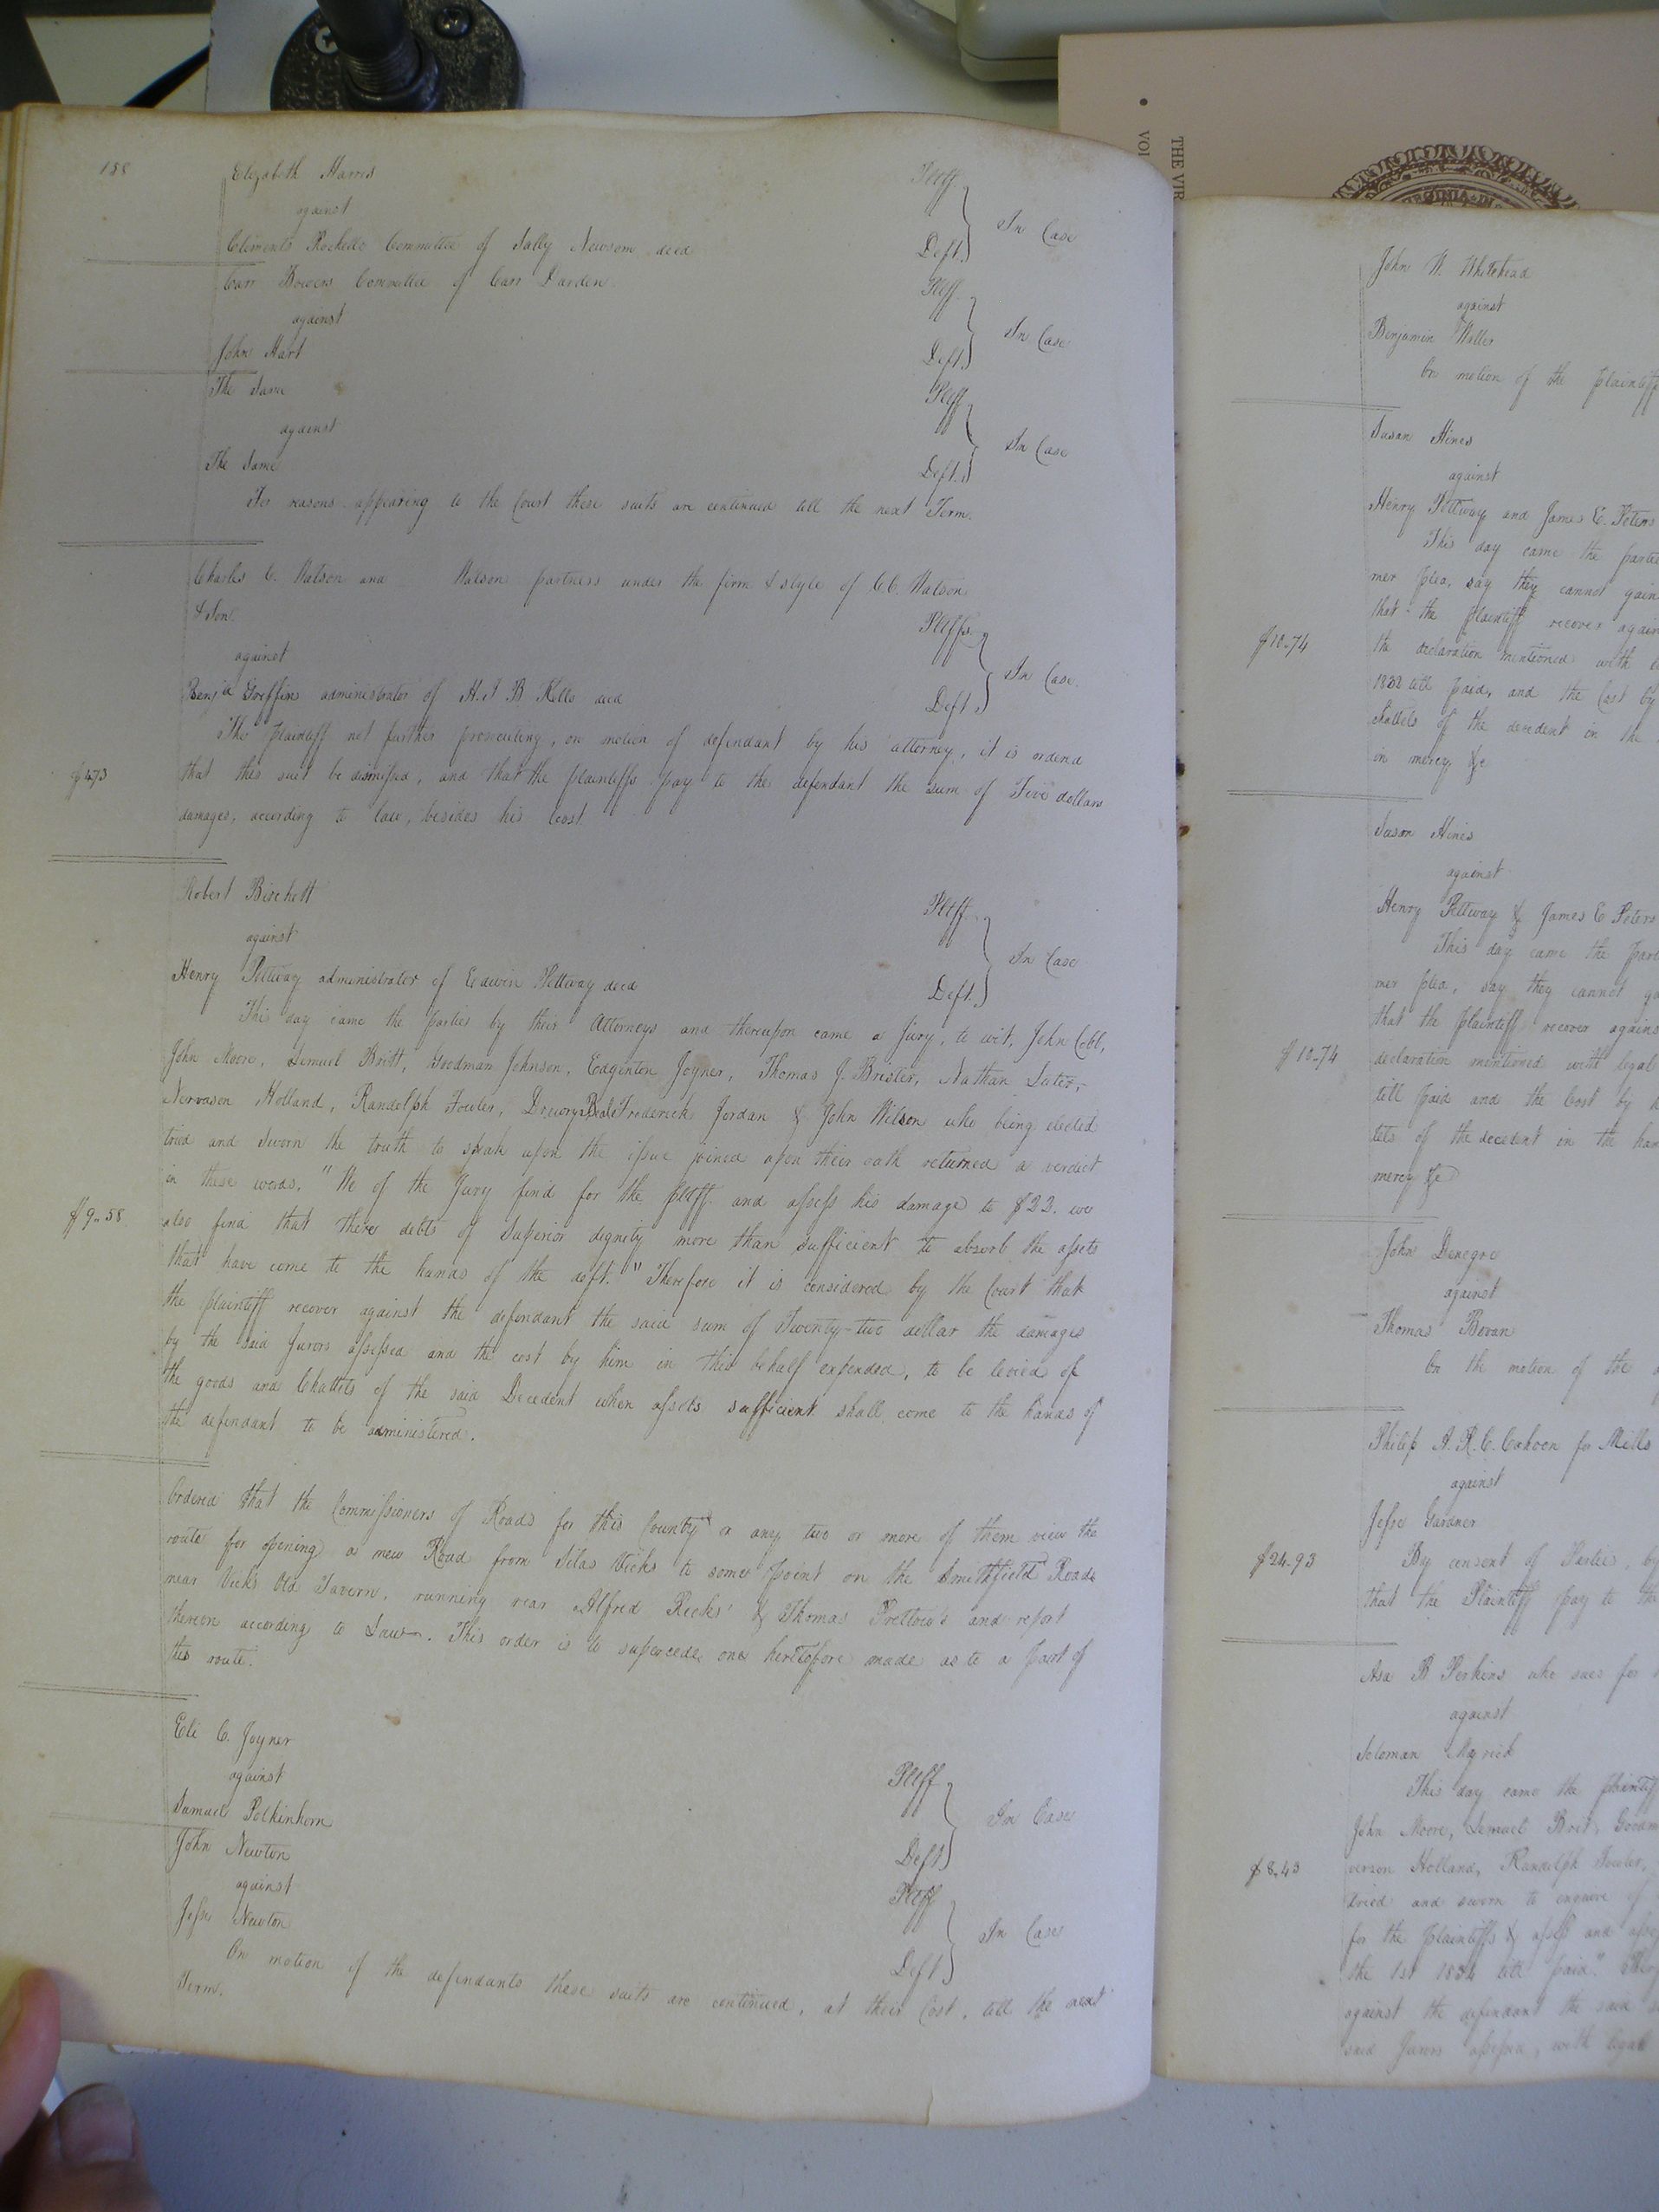 188
Elizabeth Harris Pltff
against In Case
Clements Rochelle Committee of Sally Newsom decd Deft.
Carr Bowers Committee of Carr Darden Pltff.
against In Case
John Hart Deft.
The Same Pltff
against In Case
The Same Deft.
For reasons appearing to the Court these suits are continued till the next Term.
Charles C. Watson and Watson partners under the firm & style of C.C. Watson
& Son. Pltffs.
against In Case.
Benja Griffin administrator of H. J B Kello decd Deft.
The plaintiff not further prosecuting, on motion of defendant by his attorney, it is ordered
$4.73 that this suit be dismissed, and that the plaintiffs pay to the defendant the sum of Five dollars
damages, according to law, besides his Cost.
Robert Birchett Pltff.
against In Case
Henry Pettway administrator of Edwin Pettway decd Deft.
This day came the parties by their Attorneys and thereupon came a Jury, to wit, John Cobb,
John Moore, Lemuel Britt, Goodman Johnson, Edginton Joyner, Thomas J. Brister, Nathan Luter,
Nervason Holland, Randolph Fowler, Drewry Beal Frederick Jordan & John Wilson who being elected
tried and sworn the truth to speak upon the issue joined upon their oath returned a verdict
in these words. "We of the Jury find for the pltff. and assess his damage to $22. we
$9-58 also find that there debts of Superior dignity more than sufficient to absorb the assets
that have come to the hands of the deft." Therefore it is considered by the Court that
the plaintiff recover against the defendant the said sum of Twenty-two dollar the damages
by the said Jurors assessed and the cost by him in this behalf expended, to be levied of
the goods and Chattels of the said Decedent when assets sufficient shall come to the hands of
the defendant to be administered.
Ordered that the Commissioners of Roads for this County or any two or more of them view the
route for opening a new Road from Silas Vicks to some point on the Smithfield Road
near Vick's Old Tavern, running near Alfred Ricks' & Thomas Prettow's and report
thereon according to Law. This order is to supercede one heretofore made as to a part of
this route.
Eli C. Joyner Pltff
against In Case
Samuel Polkinhorn Deft
John Newton Pltff
against In Case
Jesse Newton Deft
On motion of the defendants these suits are continued, at their Cost, till the next
Term.
THE VIR
VOL
John W. Whitehead
against
Benjamin Waller
On motion of the plaintiff
Susan Hines
against
Henry Pettway and James E. Peters
This day came the partie
mer plea, say they cannot gain
that the plaintiff recover again
$10.74 the declaration mentioned with
1832 till paid, and the Cost by
Chattels of the decedent in the
in mercy &c
Susan Hines
against
Henry Pettway & James E Peters
This day came the part
mer plea, say they cannot ga
that the plaintiff recover agains
$10.74 declaration mentioned with legal
till paid and the Cost by h
tels of the decedent in the han
mercy &c
John Denegre
against
Thomas Bevan
On the motion of the
Philip A. R. C. Cahoon for Mills
against
Jesse Gardner
$24.93 By consent of Parties, by
that the Plaintiff pay to th
Asa B Perkins who sues for
against
Soloman Myrick
This day came the plaintiff
John Moore, Lemuel Brit, Goodm
$8.43 verson Holland, Randolph Fowler,
tried and sworn to enquire of
for the plaintiffs & assess and asse
the 1st 1834 till paid." Ther
against the defendant the said s
said Jurors assessed, with legal